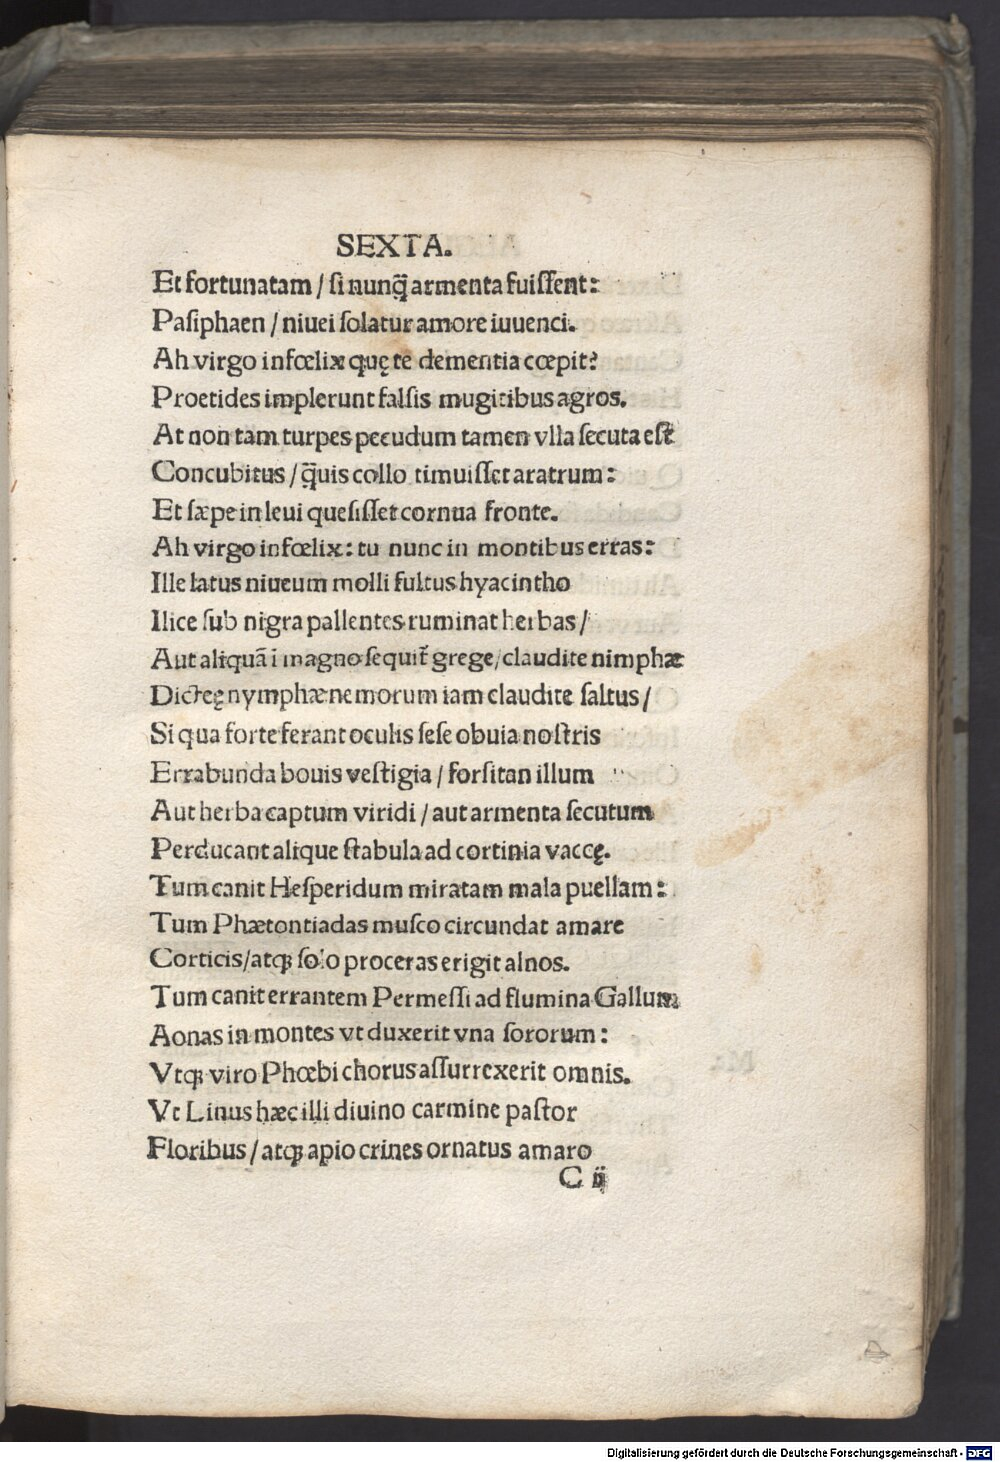 SEXTA.
Et fortunatam / si nunq̃ armenta fuiſſent:
Paſiphaen / niuei ſolatur amore iuuenci.
Ah virgo infœlix quę te dementia cœpit?
Proetides implerunt falſis mugitibus agros.
At non tam turpes pecudum tamen vlla ſecuta eſt
Concubitus / q̃uis collo timuiſſet aratrum:
Et ſæpe in leui queſiſſet cornua fronte.
Ah virgo infœlix: tu nunc in montibus erras:
Ille latus niueum molli fultus hyacintho
Ilice ſub nigra pallentes ruminat herbas /
Aut aliquã ĩ magno ſequit̃ grege / claudite nimphæ
Dicteę nymphæ nemorum iam claudite ſaltus /
Si qua forte ferant oculis ſeſe obuia noſtris
Errabunda bouis veſtigia / forſitan illum
Aut herba captum viridi / aut armenta ſecutum
Perducant alique ſtabula ad cortinia vaccę.
Tum canit Heſperidum miratam mala puellam:
Tum Phætontiadas muſco circundat amare
Corticis / atqꝫ ſolo proceras erigit alnos.
Tum canit errantem Permeſſi ad flumina Gallum
Aonas in montes vt duxerit vna ſororum:
Vtqꝫ viro Phœbi chorus aſſurrexerit omnis.
Vt Linus hæc illi diuino carmine paſtor
Floribus / atqꝫ apio crines ornatus amaro
C ij
Digitalisierung gefördert durch die Deutsche Forschungsgemeinschaft - DFG